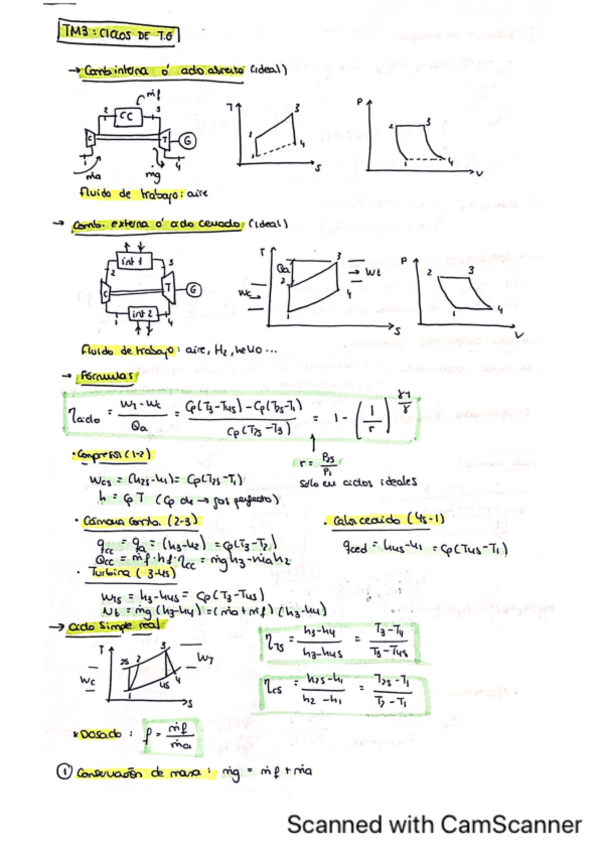 TM3: CICLOS DE T.G
→ Comb interna ó ciclo abierto (ideal)
ṁf
2 CC 3
C T G
1 4
ṁa ṁg
T 3 2 4 1 S
P 2 3 1 4 V
Fluido de trabajo: aire
→ Comb. externa ó ciclo cerrado (ideal)
int 1
2 3
C T G
int 2
1 4
T Qa 3 2 4 1 S
Wc Wt
P 2 3 1 4 V
Fluido de trabajo: aire, H2, helio...
→ Fórmulas
ηciclo = (Wt - Wc)/Qa = (Cp(T3-T4s) - Cp(T2s-T1))/(Cp(T2s-T3)) = 1 - (1/r)^((γ-1)/γ)
r = P2s/P1
sólo en ciclos ideales
· Compresor (1-2)
Wcs = (h2s-h1) = Cp(T2s-T1)
h = Cp T (Cp cte → gas perfecto)
· Cámara comb. (2-3)
qcc = qa = (h3-h2) = Cp(T3-T2)
Qcc = ṁf·hf·ηcc = ṁg h3 - ṁa h2
· Calor cedido (4s-1)
qced = h4s-h1 = Cp(T4s-T1)
· Turbina (3-4s)
Wts = h3-h4s = Cp(T3-T4s)
Nt = ṁg(h3-h4) = (ṁa+ṁf)(h3-h4)
→ Ciclo simple real
T 2s 2 3 4s 4 1 S
Wc WT
ηTs = (h3-h4)/(h3-h4s) = (T3-T4)/(T3-T4s)
ηcs = (h2s-h1)/(h2-h1) = (T2s-T1)/(T2-T1)
* Dosado: f = ṁf/ṁa
① Conservación de masa: ṁg = ṁf + ṁa
Scanned with CamScanner